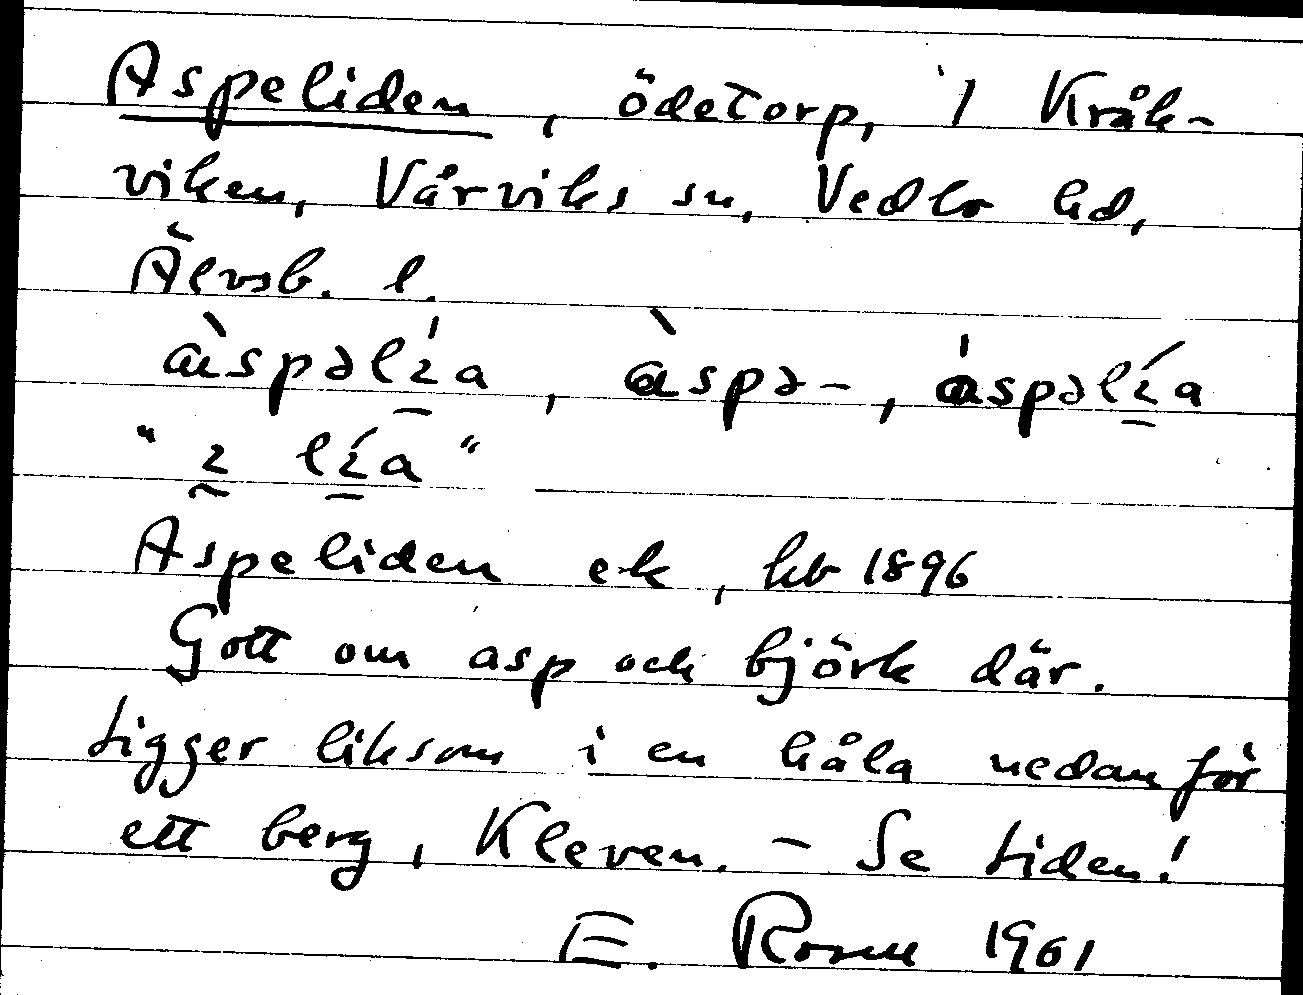 Aspeliden, ödetorp, i Kråk-
viken, Vårviks sn, Vedbo hd,
Älvsb. l.
àspəlɩ́a, àspə-, áspəlɩ́a
"ɩ lɩ́a"
Aspeliden ek, hb 1896
Gott om asp och björk där.
Ligger liksom i en håla nedanför
ett berg, Kleven. - Se Liden!
E. Rosell 1961